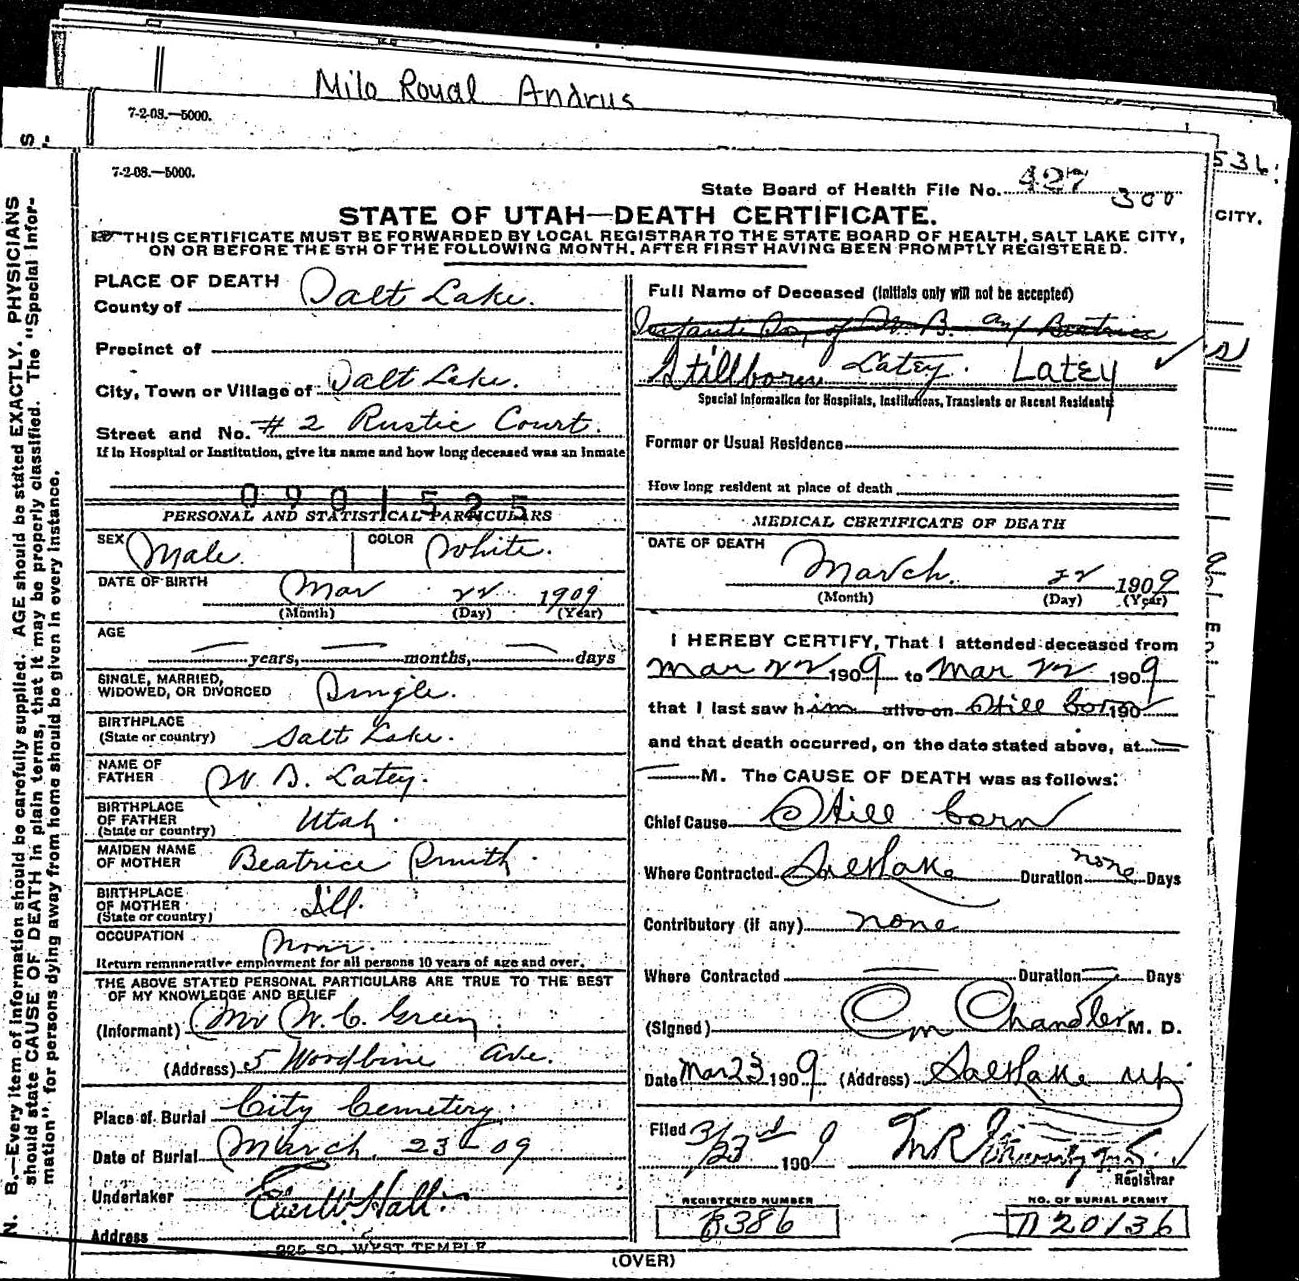 Milo Royal Andrus
7-2-08.—5000.
536
CITY.
7-2-08.—5000.
State Board of Health File No. 427
300
STATE OF UTAH—DEATH CERTIFICATE.
THIS CERTIFICATE MUST BE FORWARDED BY LOCAL REGISTRAR TO THE STATE BOARD OF HEALTH, SALT LAKE CITY,
ON OR BEFORE THE 5TH OF THE FOLLOWING MONTH, AFTER FIRST HAVING BEEN PROMPTLY REGISTERED.
N. B.—Every item of information should be carefully supplied. AGE should be stated EXACTLY. PHYSICIANS
should state CAUSE OF DEATH in plain terms, that it may be properly classified. The "Special Infor-
mation" for persons dying away from home should be given in every instance.
PLACE OF DEATH
County of Salt Lake.
Precinct of
City, Town or Village of Salt Lake.
Street and No. # 2 Rustic Court.
If in Hospital or Institution, give its name and how long deceased was an Inmate
0901525
PERSONAL AND STATISTICAL PARTICULARS
SEX Male. COLOR White.
DATE OF BIRTH Mar 22 1909
(Month) (Day) (Year)
AGE
— years, — months, — days
SINGLE, MARRIED,
WIDOWED, OR DIVORCED Single.
BIRTHPLACE
(State or country) Salt Lake.
NAME OF
FATHER W. B. Latey.
BIRTHPLACE
OF FATHER
(State or country) Utah.
MAIDEN NAME
OF MOTHER Beatrice Smith.
BIRTHPLACE
OF MOTHER
(State or country) Ill.
OCCUPATION None.
Return remunerative employment for all persons 10 years of age and over.
THE ABOVE STATED PERSONAL PARTICULARS ARE TRUE TO THE BEST
OF MY KNOWLEDGE AND BELIEF
(Informant) Mr W. C. Green.
(Address) 5 Woodbine Ave.
Place of Burial City Cemetery.
Date of Burial March 23-09
Undertaker Eber W. Hall.
Address
225 SO. WEST TEMPLE
Full Name of Deceased (Initials only will not be accepted)
Infant Son of W. B. and Beatrice
Stillborn Latey. LATEY
Special Information for Hospitals, Institutions, Transients or Recent Residents
Former or Usual Residence
How long resident at place of death
MEDICAL CERTIFICATE OF DEATH
DATE OF DEATH March. 22 1909
(Month) (Day) (Year)
I HEREBY CERTIFY, That I attended deceased from
Mar 22 1909 to Mar 22 1909
that I last saw him alive on Still born 190
and that death occurred, on the date stated above, at —
— M. The CAUSE OF DEATH was as follows:
Chief Cause Still born
Where Contracted Salt Lake Duration none Days
Contributory (if any) none
Where Contracted — Duration — Days
(Signed) Chandler M. D.
Date Mar 23 1909 (Address) Salt Lake Ut
Filed 3/23rd 1909
Registrar
REGISTERED NUMBER
B386
NO. OF BURIAL PERMIT
A20136
(OVER)